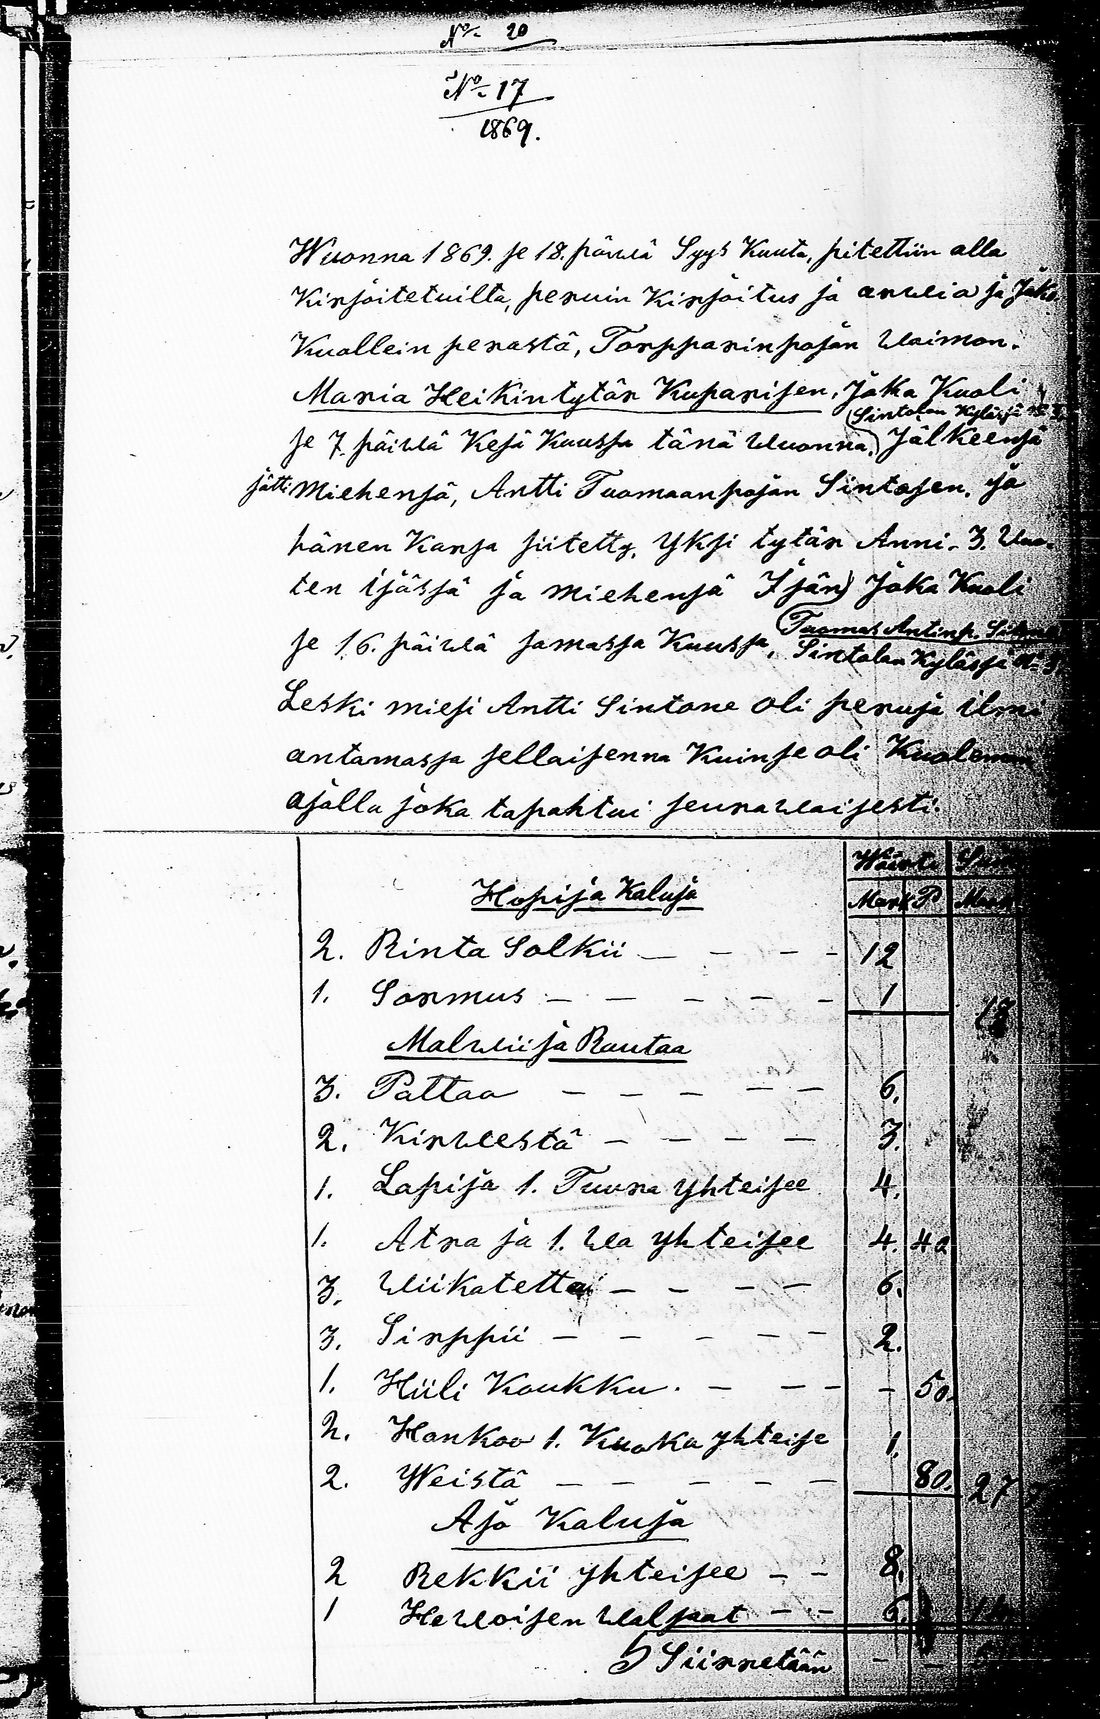 No 20
No 17
1869.
Wuonna 1869. se 18. päiwä Syys Kuuta, pitettiin alla
Kirjoitetuilta, peruin Kirjoitus ja arwio ja Jako
Kuollein perästä, Torpparinpojan Waimon.
Maria Heikintytär Kuparisen, Joka Kuoli
(Sintolan Kylässä No
se 7. päiwä Kesä Kuussa tänä wuonna,) Jälkeensä
jätti Miehensä, Antti Tuomaanpojan Sintosen, ja
hänen Kansa siitetty, Yksi tytär Anni - 3. Wuo-
ten ijässä ja miehensä Isän) Joka Kuoli
(Tuomas Antinp.
se 16. päiwä samassa Kuussa, Sintolan Kylässä No
Leski miesi Antti Sintone oli pesuja ilmi
antamassa sellaisenna Kuin se oli Kuoleman
ajalla joka tapahtui seurawaisesti.
Wäärti
Hopija Kaluja Mark P Mark
2. Rinta Solkii — — — — 12
1. Sormus — — — — — 1
Malwii ja Rautaa
3. Pattaa — — — — — 6.
2. Kirwestä — — — — 3.
1. Lapija 1. Tuura yhteisee 4.
1. Atra ja 1. Wa yhteisee 4. 40
3. Wiikatetta — — — — 6.
3. Sirppii — — — — — 2.
1. Hiili Koukku. — — — — 50.
2. Hankoo 1. Kuoka yhteise 1.
2. Weistä — — — — — 80. 27
Ajo Kaluja
2 Rekkii yhteisee — — 8.
1 Hewoisen Waljaat — — 6.
Siirretään — —